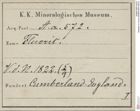 K.K. Mineralogisches Museum.
Acq. Post A.a. 672.
Name: Fluorit.
V.d.N. 1822. (2/9)
Fundort: Cumberland England.